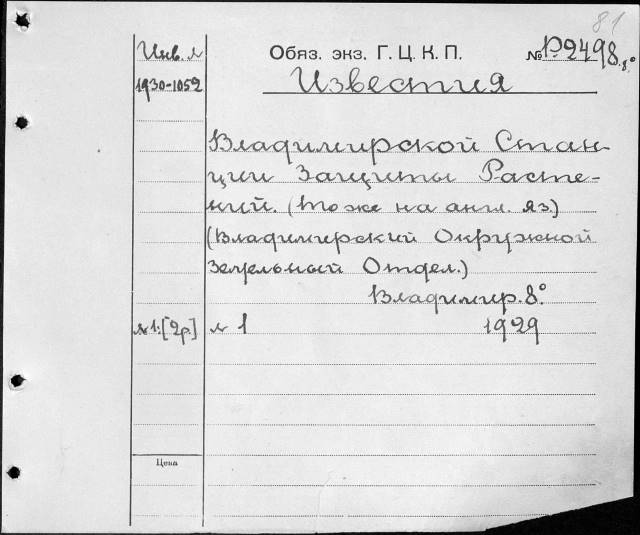 81
Инв. № Обяз. экз. Г. Ц. К. П. № Р2498.8°
1930-1052 Известия
Владимирской Стан-
ции Защиты Расте-
ний. (то же на англ. яз.)
(Владимирский Окружной
Земельный Отдел.)
Владимир. 8°.
№ 1. [2р.] № 1 1929
Цена